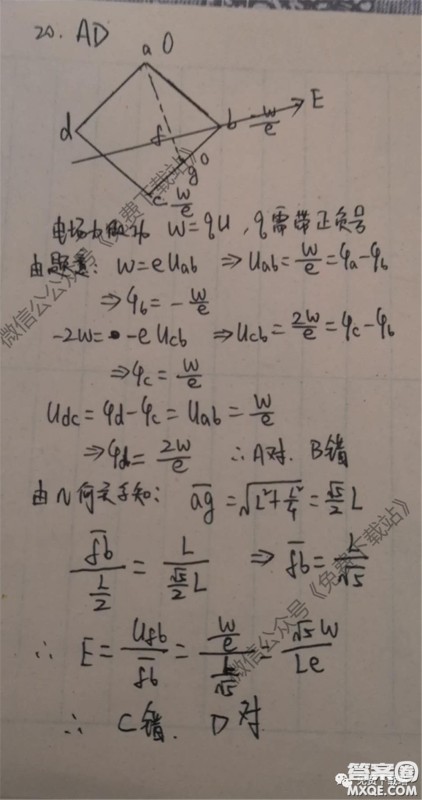 20. AD
a 0
d
f
b -W/e
E
g 0
c W/e
电场力做功 W=qU, q需带正负号
由题意: W=eUab ⇒ Uab=W/e=φa-φb
⇒ φb=-W/e
-2W=-eUcb ⇒ Ucb=2W/e=φc-φb
⇒ φc=W/e
Udc=φd-φc=Uab=W/e
⇒ φd=2W/e ∴ A对. B错
由几何关系知: ag=√(L²+L²/4)=√5/2 L
fb/(L/2)=L/(√5/2 L) ⇒ fb=L/√5
∴ E=Ufb/fb=(W/e)/(L/√5)=√5W/Le
∴ C错. D对
微信公众号《免费下载站》
微信公众号《免费下载站》
免费下载站
答案圈
MXQE.COM